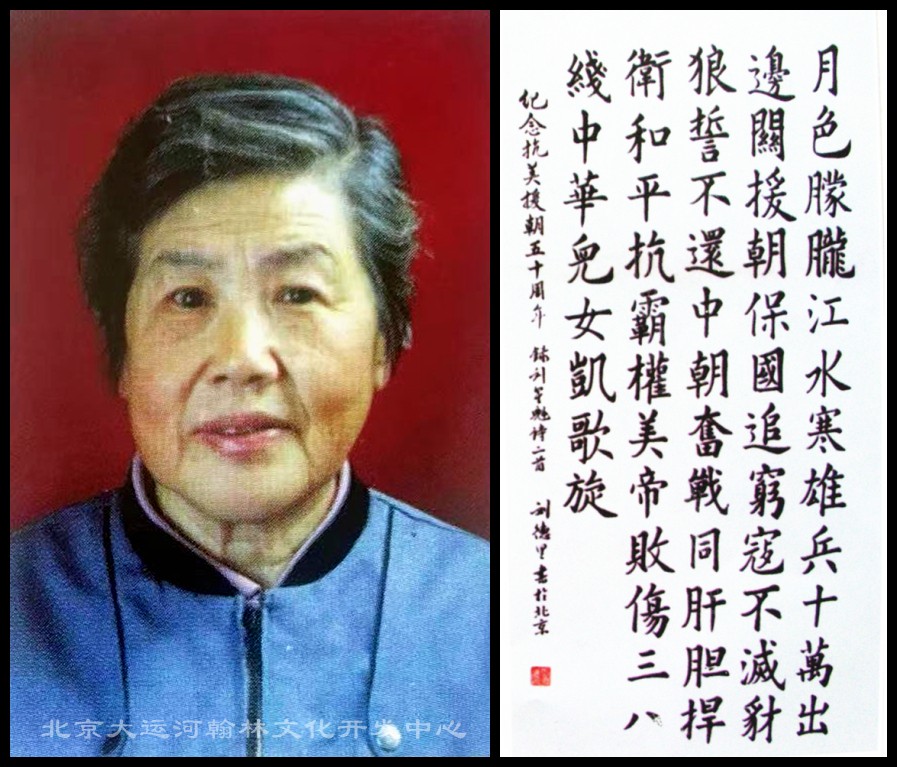 月色朦朧江水寒雄兵十萬出
邊關援朝保國追窮寇不滅豺
狼誓不還中朝奮戰同肝胆捍
衛和平抗霸權美帝敗傷三八
綫中華兒女凱歌旋
纪念抗美援朝五十周年 錄刘 魁诗二首 刘德 书於北京
北京大运河翰林文化开发中心